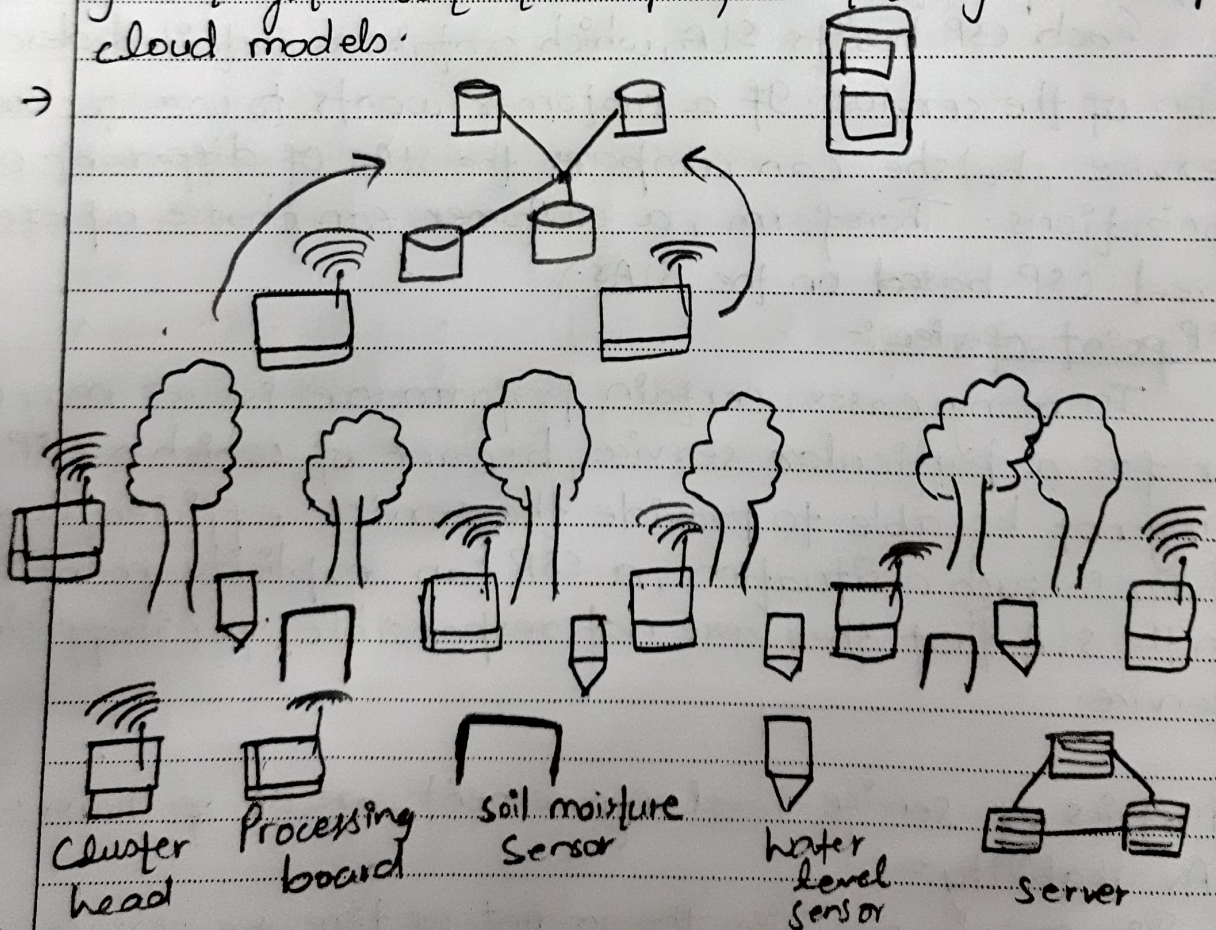 cloud models.
→
Cluster
head
Processing
board
Soil moisture
Sensor
Water
level
sensor
Server